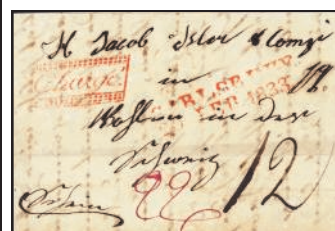 H Jacob Isler & Comp
Chargé.
in
CARLSRUHE
1833
Wohlen in der
Schweiz
12
22